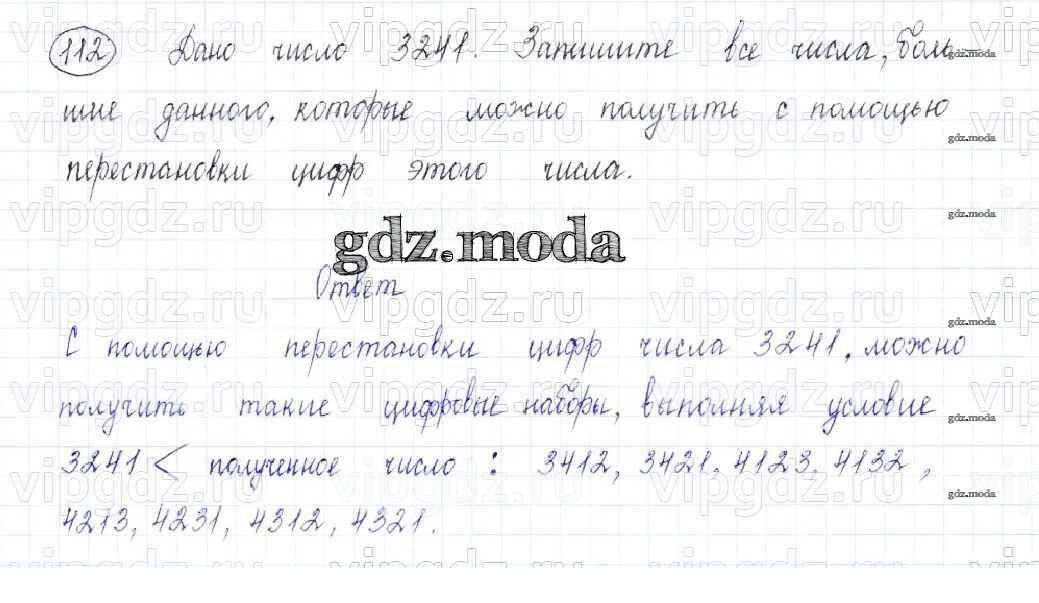 112 Дано число 3241. Запишите все числа, боль-
шие данного, которые можно получить с помощью
перестановки цифр этого числа.
gdz.moda
Ответ
С помощью перестановки цифр числа 3241, можно
получить такие цифровые наборы, выполняя условие
3241 < полученное число : 3412, 3421, 4123, 4132,
4213, 4231, 4312, 4321.